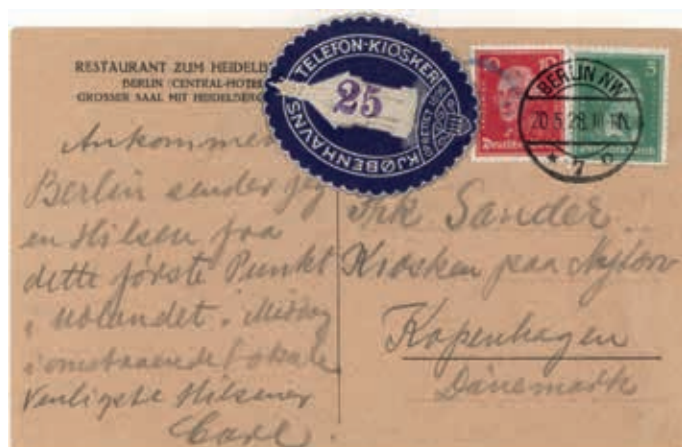 RESTAURANT ZUM HEIDELB
BERLIN (CENTRAL-HOTE
GROSSER SAAL MIT HEIDELBERG
TELEFON-KIOSKER
KJØBENHAVNS
OPRETTET 1896
25
10
5
Deutsche
BERLIN NW
20.5.28.
* 7
Ankommen
Berlin sender jeg
en Hilsen fra
dette første Punkt
i Udlandet. Middag
i omstaaende Lokale
Venligste Hilsener
Carl.
Frk Sander
Kiosken paa Nytorv
Kopenhagen
Dänemark